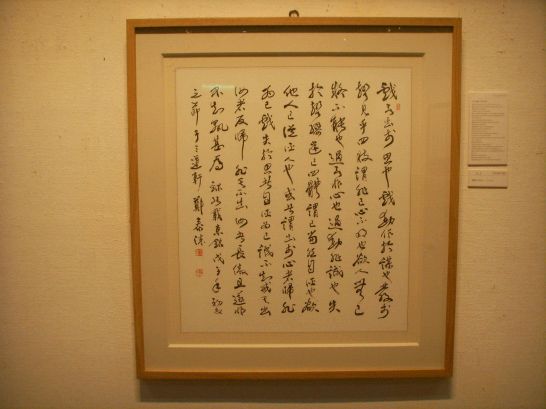 戲言出於思也戲動作於謀也發於
聲見乎四肢謂非己心不明也欲人無己
疑不能也過言非心也過動非誠也失
於聲繆迷其四體謂己當然自誣也欲
他人己從誣人也或者謂出於心者歸咎
為己戲失於思者自誣為己誠不知戒其出
汝者反歸咎其不出汝者長傲且遂非
不知孰甚焉 載東銘戊子年初
立節于三 軒 鄭泰